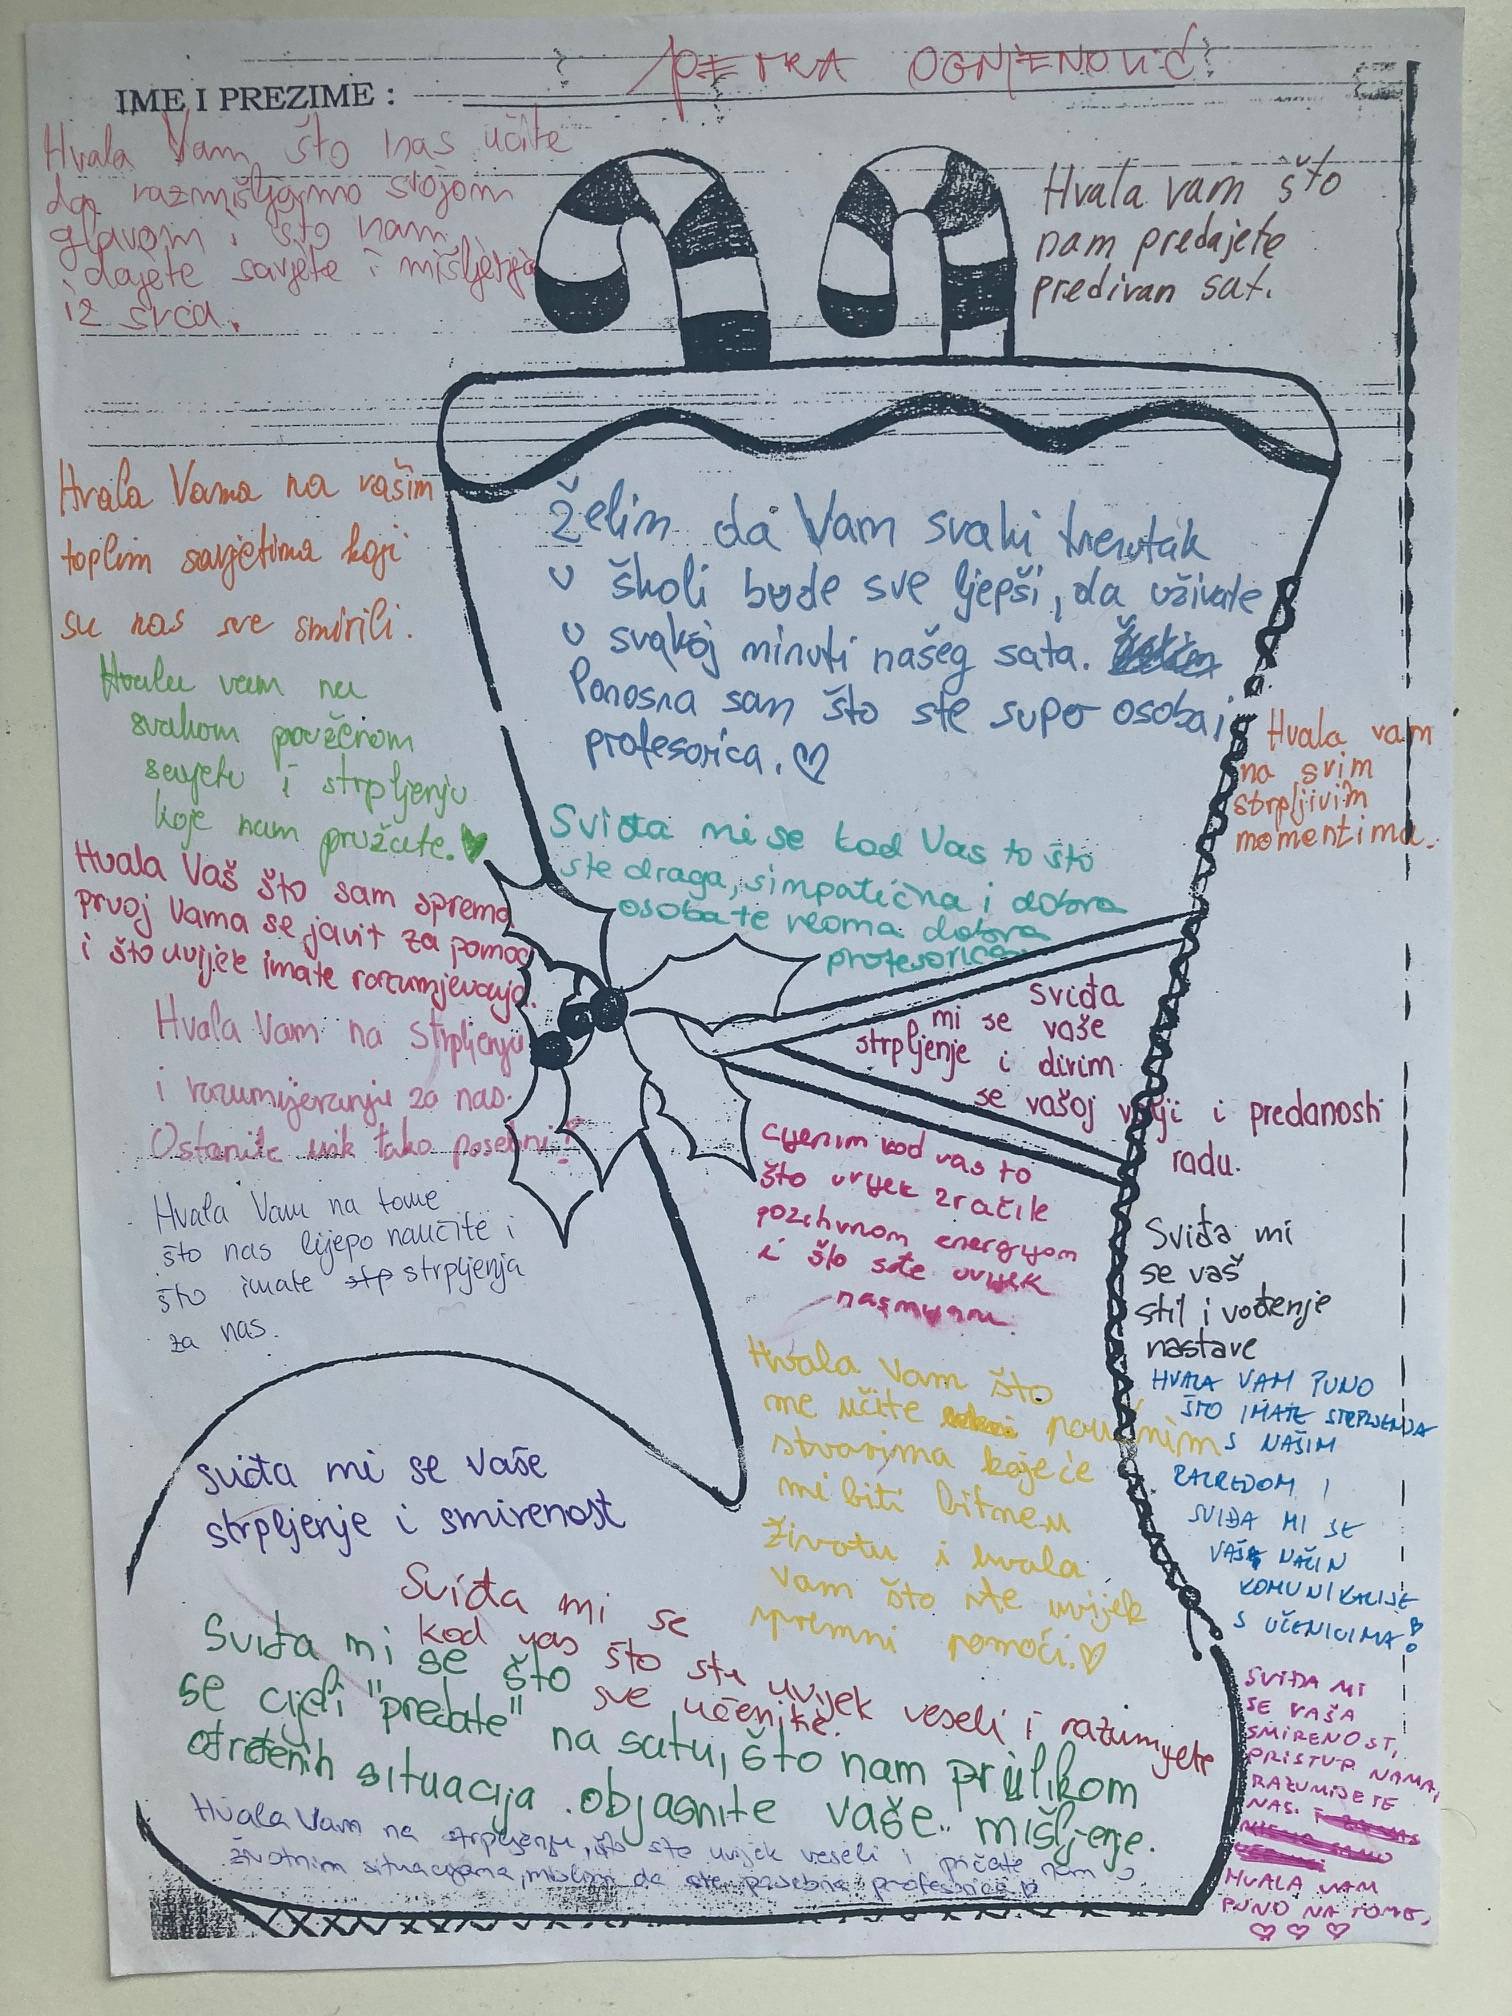 IME I PREZIME :
PETRA OGNJENOVIĆ
Hvala Vam što nas učite
da razmišljamo svojom
glavom i što nam
dajete savjete i mišljenja
iz srca.
Hvala vam što
nam predajete
predivan sat.
Hvala Vama na vašim
toplim savjetima koji
su nas sve smirili.
Želim da Vam svaki trenutak
u školi bude sve ljepši, da uživate
u svakoj minuti našeg sata.
Ponosna sam što ste super osoba i
profesorica. ♡
Hvala vam na
svakom poučnom
savjetu i strpljenju
koje nam pružate. ♥
Hvala vam
na svim
strpljivim
momentima.
Sviđa mi se kod Vas to što
ste draga, simpatična i dobra
osoba te veoma dobra
profesorica
Hvala Vaš što sam spremna
prvoj Vama se javit za pomoć
i što uvijek imate razumjevanja.
Hvala Vam na strpljenju
i razumijevanju za nas.
Ostanite uvik tako posebni!
sviđa
mi se vaše
strpljenje i divim
se vašoj volji i predanosti
radu.
Cijenim kod vas to
što uvijek zračite
pozitivnom energijom
i što ste uvijek
nasmijani.
Hvala Vam na tome
što nas lijepo naučite i
što imate stp strpljenja
za nas.
Sviđa mi
se vaš
stil i vođenje
nastave
Hvala Vam što
me učite poučnim
stvarima koje će
mi biti bitne u
životu i hvala
vam što ste uvijek
spremni pomoći. ♡
HVALA VAM PUNO
ŠTO IMATE STRPLJENJA
S NAŠIM
RAZREDOM I
SVIĐA MI SE
VAŠ NAČIN
KOMUNIKACIJE
S UČENICIMA!
sviđa mi se vaše
strpljenje i smirenost
Sviđa mi se
kod vas što ste uvijek veseli i razumijete
sve učenike.
Sviđa mi se što
se cijeli "predate" na satu, što nam prilikom
određenih situacija objasnite vaše mišljenje.
Hvala Vam na strpljenju, što ste uvijek veseli i pričate nam o
životnim situacijama, mislim da ste posebna profesorica ♡
SVIĐA MI
SE VAŠA
SMIRENOST,
PRISTUP NAMA,
RAZUMIJETE
NAS.
HVALA VAM
PUNO NA TOME,
♡ ♡ ♡